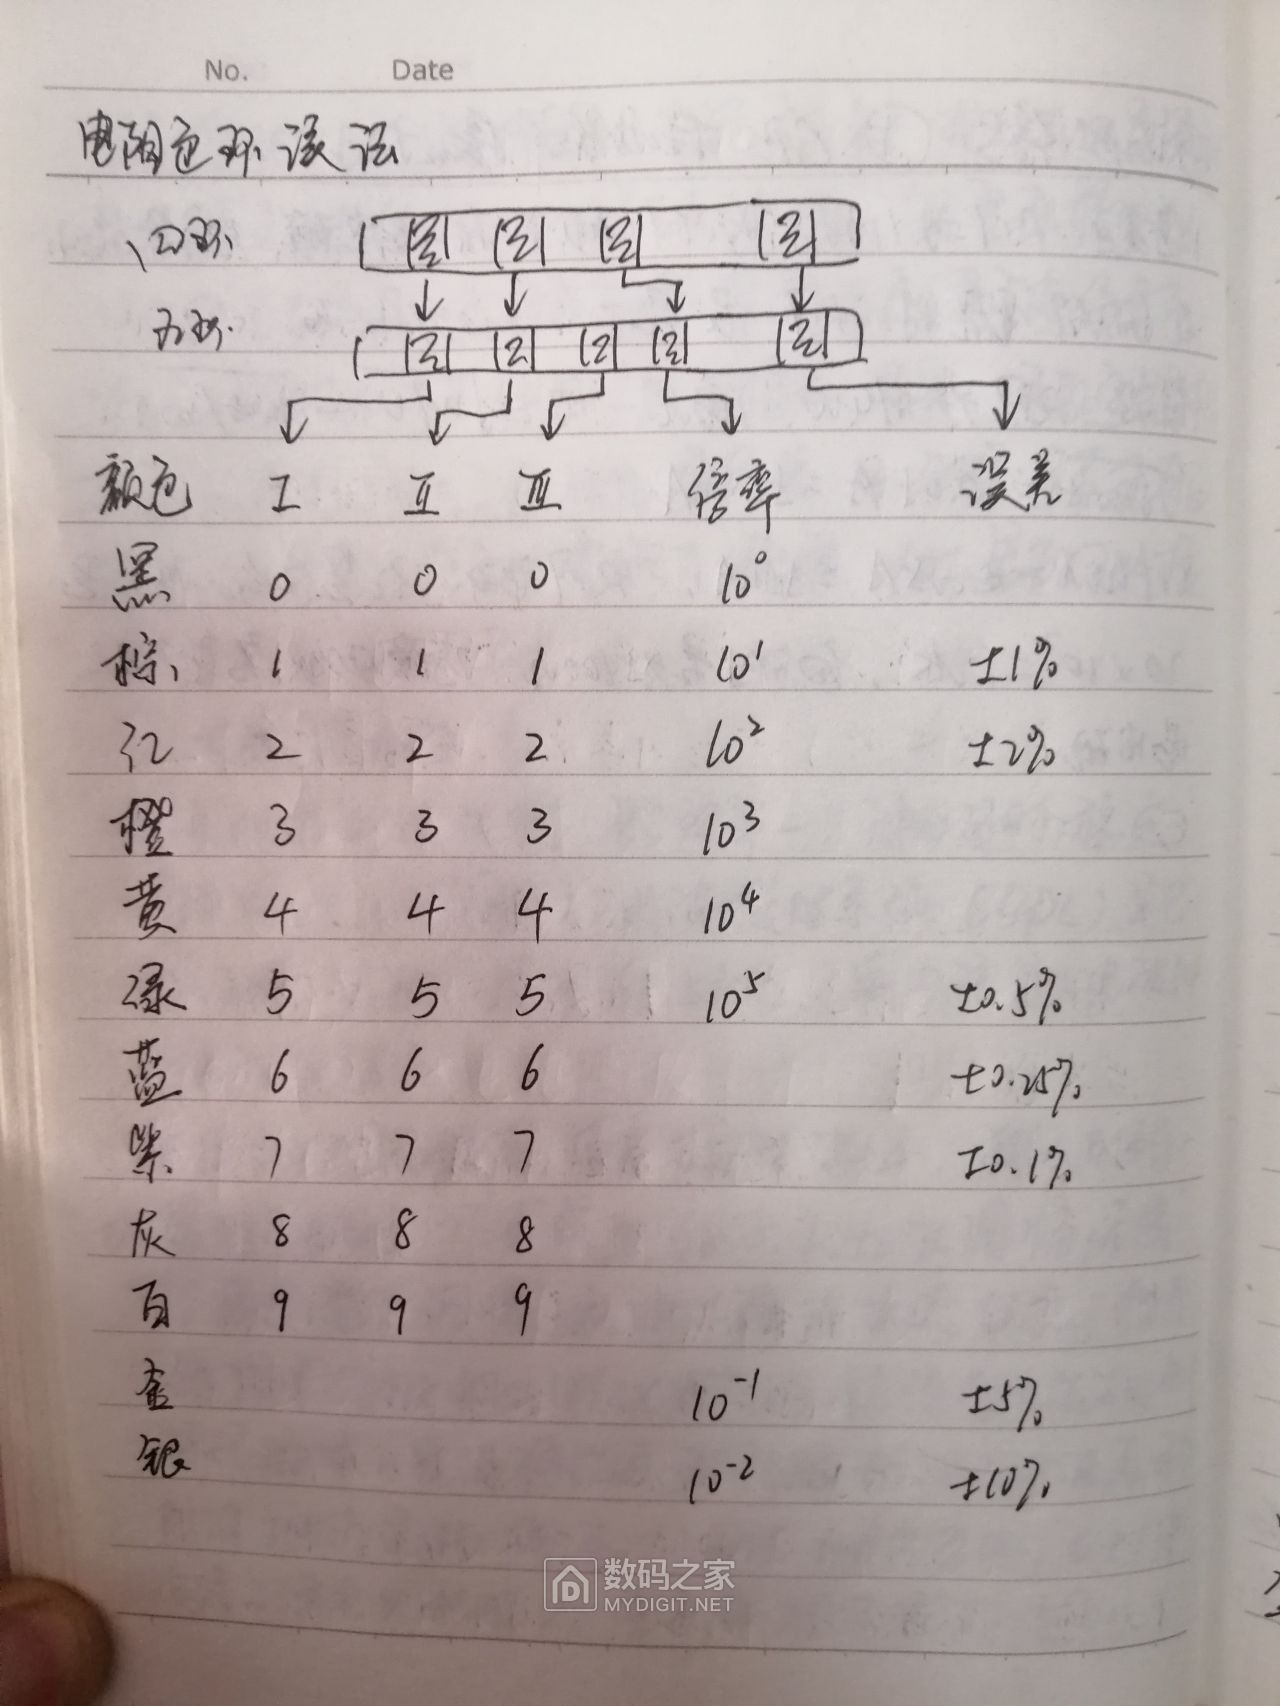 No. Date
电阻色环读法
四环
五环
颜色 I II III 倍率 误差
黑 0 0 0 10⁰
棕 1 1 1 10¹ ±1%
红 2 2 2 10² ±2%
橙 3 3 3 10³
黄 4 4 4 10⁴
绿 5 5 5 10⁵ ±0.5%
蓝 6 6 6 ±0.25%
紫 7 7 7 ±0.1%
灰 8 8 8
白 9 9 9
金 10⁻¹ ±5%
银 10⁻² ±10%
数码之家
MYDIGIT.NET